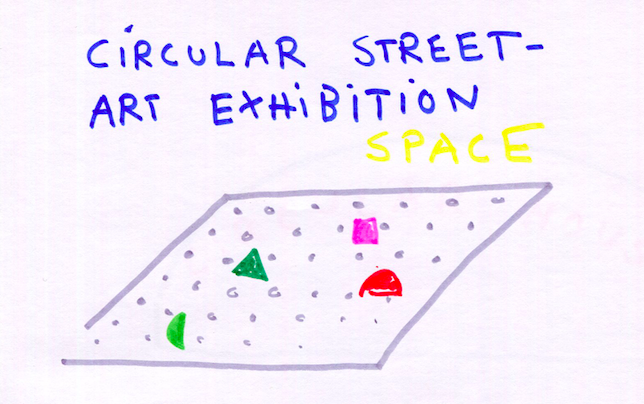 CiRCULAR STREET-
ART EXHiBiTiON
SPACE